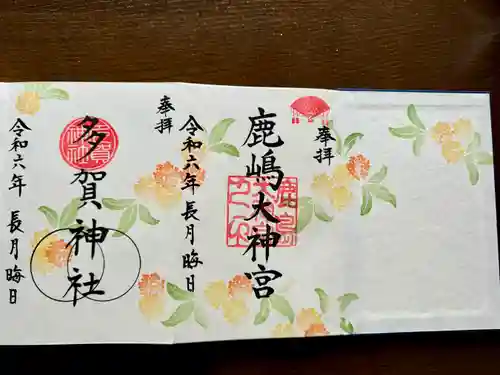 奉拝
鹿嶋大神宮
令和六年 長月 晦日
奉拝
多賀神社
令和六年 長月 晦日